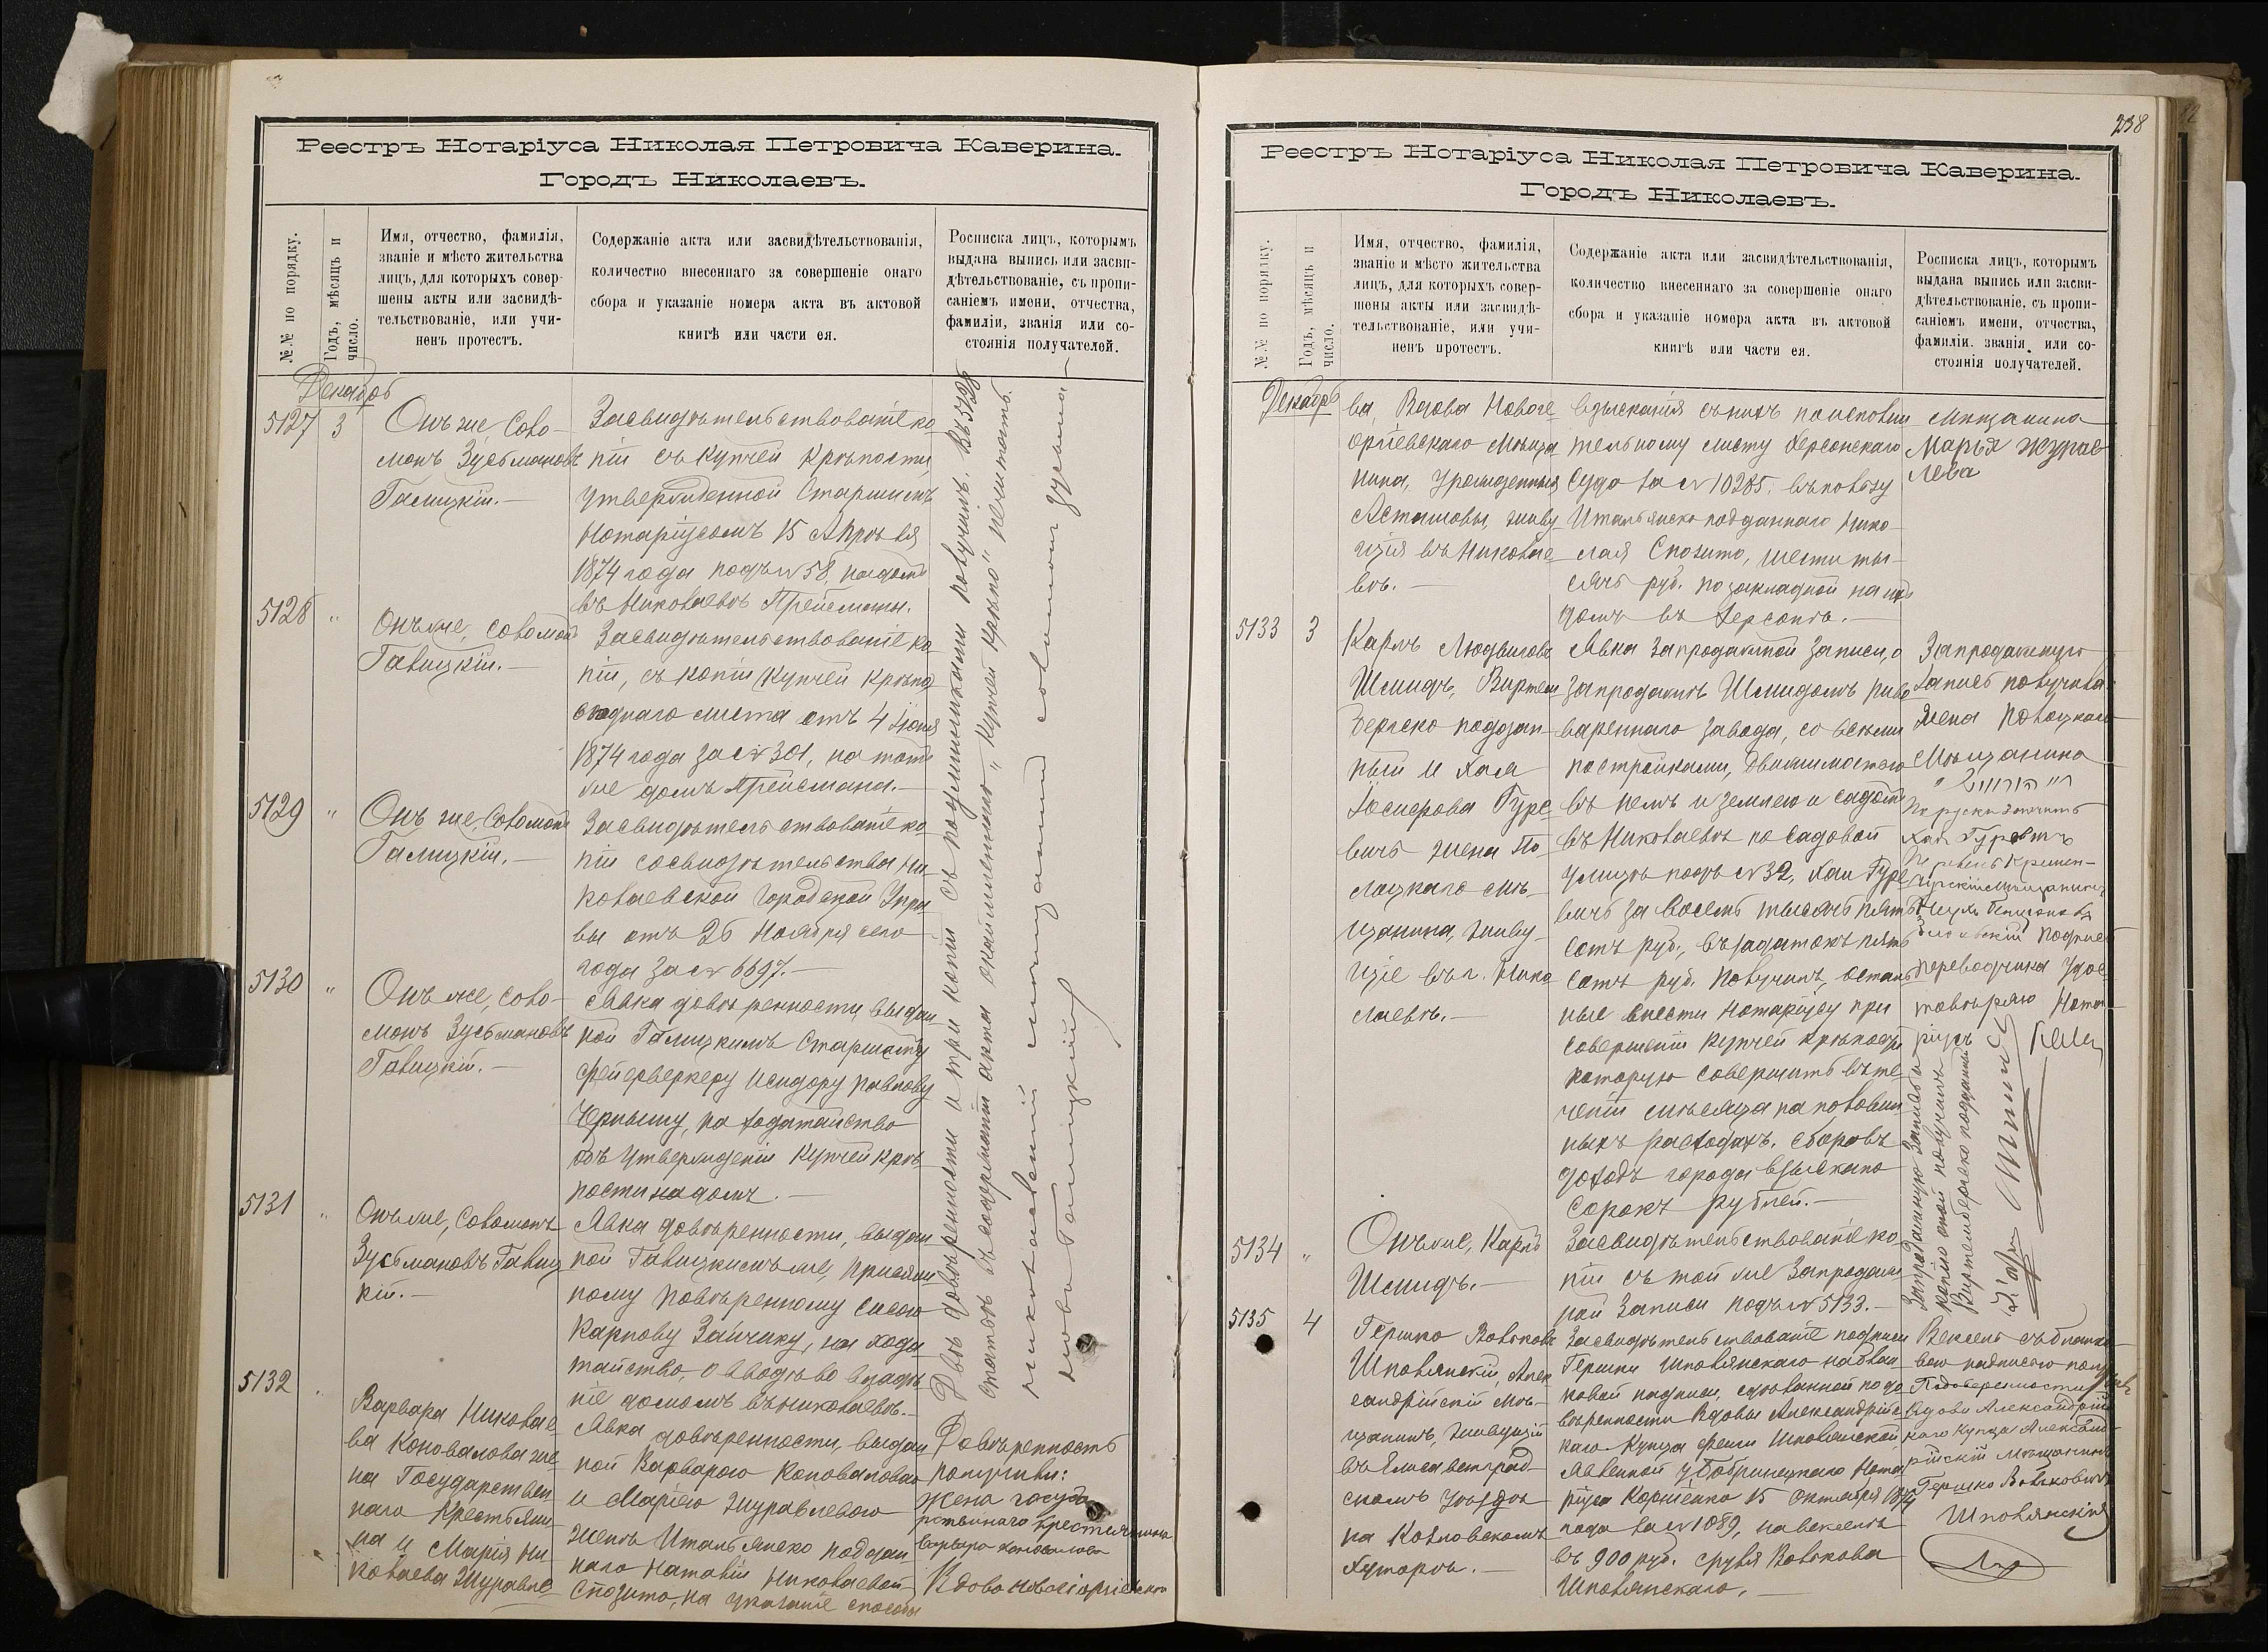 Реестръ Нотаріуса Николая Петровича Каверина.
Городъ Николаевъ.
№.№ по порядку.
Годъ, мѣсяцъ и
число.
Имя, отчество, фамилія,
званіе и мѣсто жительства
лицъ, для которыхъ совер-
шены акты или засвидѣ-
тельствованіе, или учи-
ненъ протестъ.
Содержаніе акта или засвидѣтельствованія,
количество внесеннаго за совершеніе онаго
сбора и указаніе номера акта въ актовой
книгѣ или части ея.
Росписка лицъ, которымъ
выдана выпись или засви-
дѣтельствованіе, съ пропи-
саніемъ имени, отчества,
фамиліи, званія или со-
стоянія получателей.
Декабрь
5127 3
Онъ же, Соло-
монъ Зусьмановъ
Галицкій.—
Засвидѣтельствованіе ко-
піи съ купчей крѣпости,
утвержденной Старшимъ
Нотаріусомъ 15 Апрѣля
1874 года подъ № 58, на домъ
въ Николаевѣ Прейсмана.
5128 "
Онъ же, Соломонъ
Галицкій.—
Засвидѣтельствованіе ко-
піи, съ копіи купчей крѣпо
вводнаго листа отъ 4 Іюня
1874 года за № 301, на тотъ
же домъ Прейсмана.—
5129 "
Онъ же, Соломонъ
Галицкій.—
Засвидѣтельствованіе ко-
піи свидѣтельства, Ни-
колаевской Городской Упра-
вы отъ 26 Ноября сего
года за № 6697.—
5130 "
Онъ же, Соло-
монъ Зусьмановъ
Галицкій.—
Явка довѣренности, выдан-
ной Галицкимъ Старшему
фейерверкеру Исидору Павлову
Черному, на ходатайство
объ утвержденіи купчей крѣ-
пости на домъ.—
5131 "
Онъ же, Соломонъ
Зусьмановъ Галиц-
кій.—
Явка довѣренности, выдан-
ной Галицкимъ же, присяж-
ному повѣренному Сысою
Карпову Зайчику, на хода-
тайство, о вводѣ во владѣ-
ніе домомъ въ Николаевѣ.—
5132 "
Варвара Николае-
ва Коновалова же-
на Государствен-
наго крестьяни-
на и Марія Ни-
колаева Журавле-
Явка довѣренности, выдан
ной Варварою Коноваловою
и Маріею Журавлевою
женѣ Итальянско поддан
наго Наталіи Николаевой
Спозито, на указаніе способы
Двѣ довѣренности и три копіи съ подлинниками получилъ. Въ 5128
статьѣ въ содержаніи акта окаймленное „купчей крѣпо" не читать.
николаевскій мѣщанинъ соломонъ зусьма-
новъ Галицкій
Довѣренность
получили:
жена государ
рственнаго крестьянина
варвара коновалова
Вдова новогеоргіевскаго
238
Реестръ Нотаріуса Николая Петровича Каверина.
Городъ Николаевъ.
№.№ по порядку.
Годъ, мѣсяцъ и
число.
Имя, отчество, фамилія,
званіе и мѣсто жительства
лицъ, для которыхъ совер-
шены акты или засвидѣ-
тельствованіе, или учи-
ненъ протестъ.
Содержаніе акта или засвидѣтельствованія,
количество внесеннаго за совершеніе онаго
сбора и указаніе номера акта въ актовой
книгѣ или части ея.
Росписка лицъ, которымъ
выдана выпись или засви-
дѣтельствованіе, съ пропи-
саніемъ имени, отчества,
фамиліи, званія, или со-
стоянія получателей.
Декабрь
ва, Вдова Новоге-
оргіевскаго мѣща
нина, урожденныя
Асташовы, живу-
щія въ Николае-
вѣ.—
взысканія съ нихъ по исполни
тельному листу Херсонскаго
Суда за № 10285, въ пользу
Итальянско подданнаго Нико-
лая Спозито, шести ты-
сячъ руб. по закладной на ихъ
домъ въ Херсонѣ.—
мищанина
Марья журав
лева
5133 3
Карлъ Людвиговъ
Шмидъ, Виртем
бергско поддан-
ный и Хая
Іосифова Гуре-
вичъ жена По-
лоцкаго мѣ-
щанина, живу-
щіе въ г. Нико-
лаевѣ.—
Явка запродажной записи, о
запродажѣ Шмидомъ пиво
вареннаго завода, со всѣми
постройками, движимостью
въ немъ и землею и садомъ
въ Николаевѣ по Садовой
улицѣ подъ № 32, Хаи Гуре
вичъ за восемь тысячъ пять
сотъ руб., въ задатокъ пять
сотъ руб. получилъ, осталь
ные внести Нотаріусу при
совершеніи купчей крѣпости
которую совершить въ те-
ченіи мѣсяца на половин
ныхъ расходахъ. Сборовъ
доходъ города взыскано
сорокъ рублей.—
Запродажную
запись получила
жена Полоцкаго
Мѣщанина
По руски значитъ
Хая Гуревичъ
Перевелъ Кремен-
чугскій мѣщанинъ
подпись
переводчика удос-
товѣряю Нота-
ріусъ
Запродажную запись и
копію оной получилъ
Виртембергско подданный
5134 "
Онъ же, Карлъ
Шмидъ.—
Засвидѣтельствованіе ко-
піи съ той же запродаж
ной записи подъ № 5133.—
5135 4
Гершко Вольковъ
Шполянскій, Алек
сандрійскій мѣ-
щанинъ, живущій
въ Елисаветград-
скомъ уѣздѣ
на Козловскомъ
хуторѣ.—
Засвидѣтельствованіе подписи
Гершки Шполянскаго на блан
ковой надписи, сдѣланной по до
вѣренности вдовы Александрійс
каго купца Фени Шполянской,
явленной у Бобринецкаго Нота
ріуса Корніенко 15 Октября 1874
года за № 1089, на векселѣ
въ 900 руб. Срулія Волькова
Шполянскаго.—
Вексель съ бланко-
вою надписью получилъ
По доверенности
вдовы Александрійс
каго купца Александ-
рійскій мѣщанинъ
Гершко Вольковичъ
Шполянскій